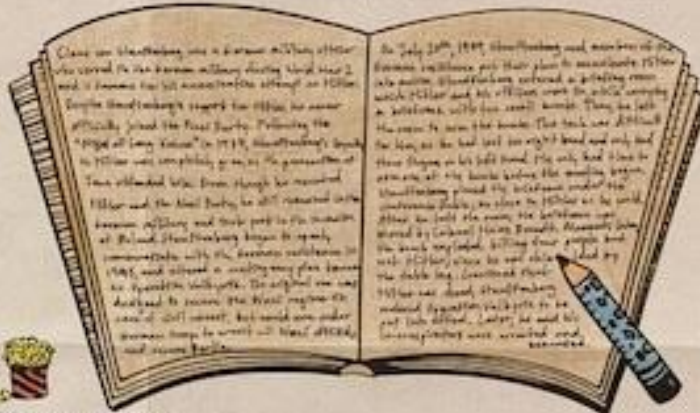 Claus von Stauffenberg was a German military officer
who served in the German military during World War 2
and is famous for his assassination attempt on Hitler.
Despite Stauffenberg's support for Hitler, he never
officially joined the Nazi Party. Following the
"Night of Long Knives" in Stauffenberg's loyalty
to Hitler was completely gone, as the persecution of
Jews offended him. Even though he resented
Hitler and the Nazi Party, he still remained in the
German military and took part in the invasion
of Poland. Stauffenberg began to openly
communicate with the German resistance in
and altered a contingency plan known
as Operation Valkyrie. Its original use was
designed to secure the Nazi regime in
case of civil unrest, but would now order
German troops to arrest all Nazi officials
and secure Berlin.
On July 20th, Stauffenberg and members of the
German resistance put their plan to assassinate Hitler
into motion. Stauffenberg entered a briefing room
which Hitler and his officers were in while carrying
a briefcase with two small bombs. Then, he left
the room to arm the bombs. This task was difficult
for him, as he had lost his right hand and only had
three fingers on his left hand. He only had time to
arm one of the bombs before the meeting began.
Stauffenberg placed the briefcase under the
conference table, as close to Hitler as he could.
After he left the room, the briefcase was
moved by Colonel Heinz Brandt. Moments later,
the bomb exploded, killing four people but
not Hitler, since he was by
the table leg. Convinced that
Hitler was dead, Stauffenberg
ordered Operation Valkyrie to be
put into effect. Later, he and his
co-conspirators were arrested and
executed.